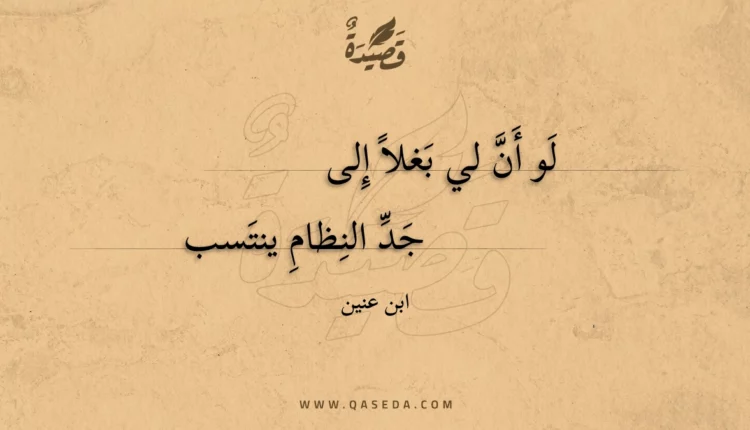 قَصِيْدَةٌ
لَو أَنَّ لي بَغلاً إِلى
جَدِّ النِظامِ ينتَسب
ابن عنين
WWW.QASEDA.COM